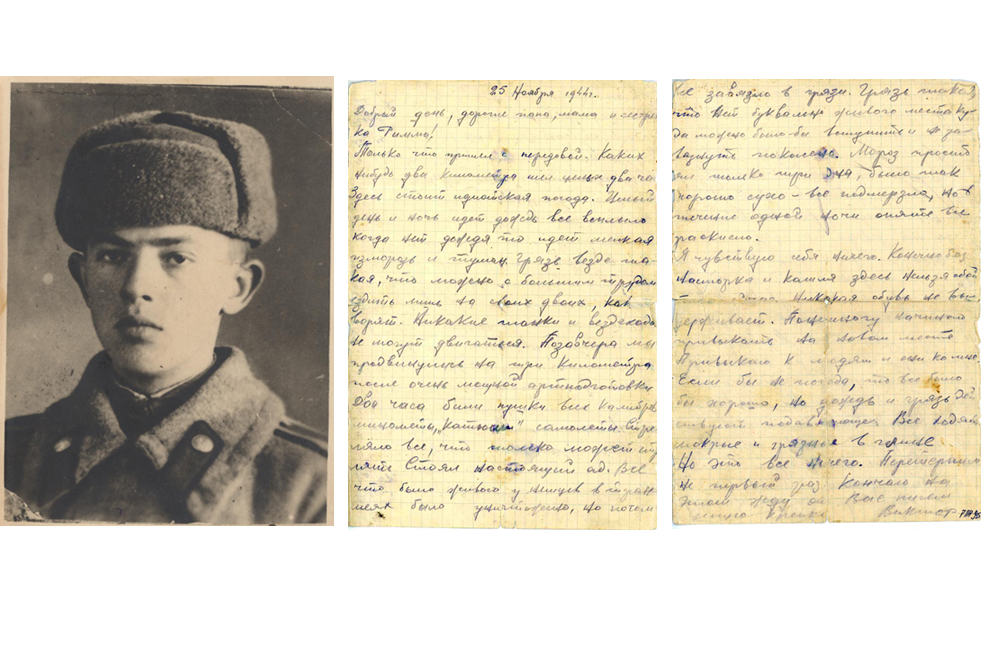 25 Ноября 1944г.
Добрый день, дорогие папа, мама и сестрен
ка Римма!
Только что пришел с передовой. Каких
нибудь два километра шел целых два часа
Здесь стоит идиотская погода. Целый
день и ночь идет дождь все всплыло
когда нет дождя то идет мелкая
изморозь и туман. Грязь везде та
кая, что можно с большим трудом
ходить лишь на своих двоих, как
ворят. Никакие танки и вездеходы
не могут двигаться. Позавчера мы
продвинулись на три километра
после очень мощной артподготовки
Два часа били пушки всех калибров
минометы, "Катюши" самолеты. Стре
ляло все, что только может стр
лять Стоял настоящий ад. Все
что было живого у немцев в тран
шеях было уничтожено, но потом
все завязло в грязи. Грязь такая
что нет буквально живого места ку
да можно было-бы вступить и не за
вязнуть по колено. Мороз простоя
ли только три дня, было так
хорошо сухо - все подмерзло, но в
течение одной ночи опять все
раскисло.
Я чувствую себя ничего. Конечно без
насморка и кашля здесь нельзя обой
Никакая обувь не вы
держивает. Понемногу начинаю
привыкать на новом месте
Привыкаю к людям и они ко мне.
Если бы не погода, то все было
бы хорошо, но дождь и грязь дей
ствуют подавляюще. Все ходят
мокрые и грязные в глине
Но это все ничего. Перетерпим
не первый раз. Кончаю на
этом жду от Вас писем
Виктор